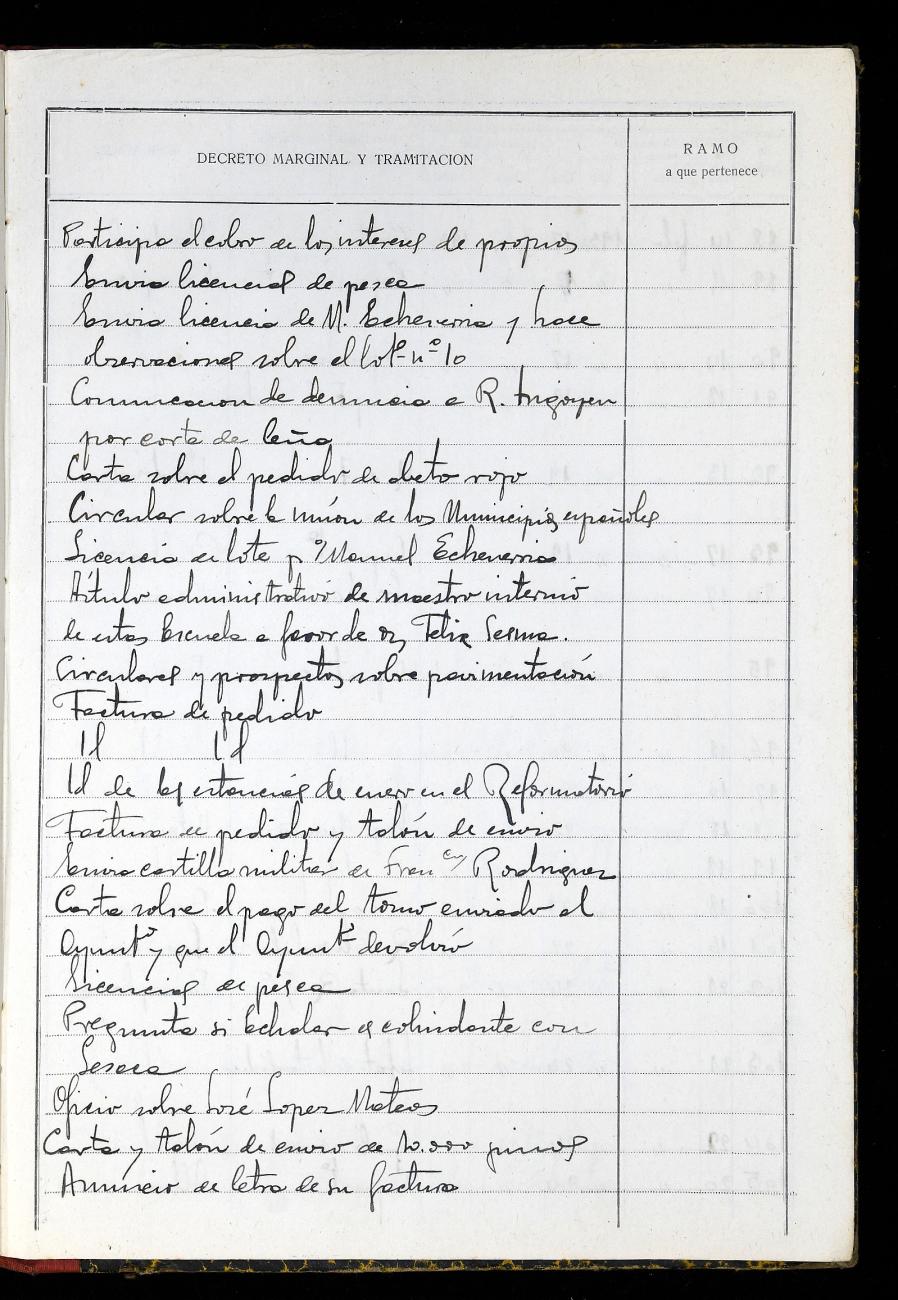 DECRETO MARGINAL Y TRAMITACION
RAMO
a que pertenece
Participa el cobro de los intereses de propios
Envia licencias de pesca
Envia licencia de M. Echeverria y hace
observaciones sobre el lote nº 10
Comunicacion de denuncia a R. Irigoyen
por corta de leña
Carta sobre el pedido de abeto rojo
Circular sobre la unión de los Municipios españoles
Licencia de lote pº Manuel Echeverria
Título administrativo de maestro interino
de estas Escuelas a favor de Dn Felix Sesma.
Circulares y prospectos sobre pavimentación
Factura de pedido
Id Id
Id de las estancias de enero en el Reformatorio
Factura de pedido y talón de envio
Envia cartilla militar de Franco Rodriguez
Carta sobre el pago del tomo enviado al
Ayuntº y que el Ayuntº devolvió
Licencias de pesca
Pregunta si Echalar es colindante con
Lesaca
Oficio sobre José Lopez Mateos
Carta y talón de envio de 10.000 pinos
Anuncio de letra de su factura